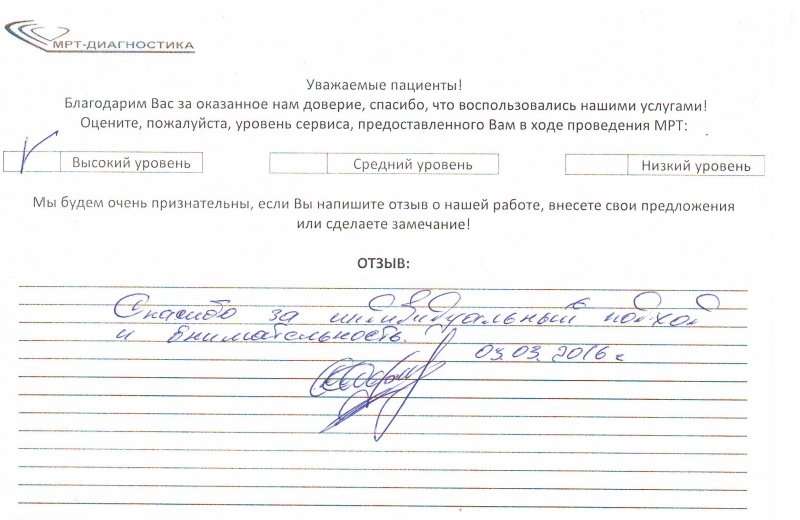 МРТ-ДИАГНОСТИКА
Уважаемые пациенты!
Благодарим Вас за оказанное нам доверие, спасибо, что воспользовались нашими услугами!
Оцените, пожалуйста, уровень сервиса, предоставленного Вам в ходе проведения МРТ:
Высокий уровень Средний уровень Низкий уровень
Мы будем очень признательны, если Вы напишите отзыв о нашей работе, внесете свои предложения
или сделаете замечание!
ОТЗЫВ:
Спасибо за индивидуальный подход
и внимательность.
03.03.2016 г